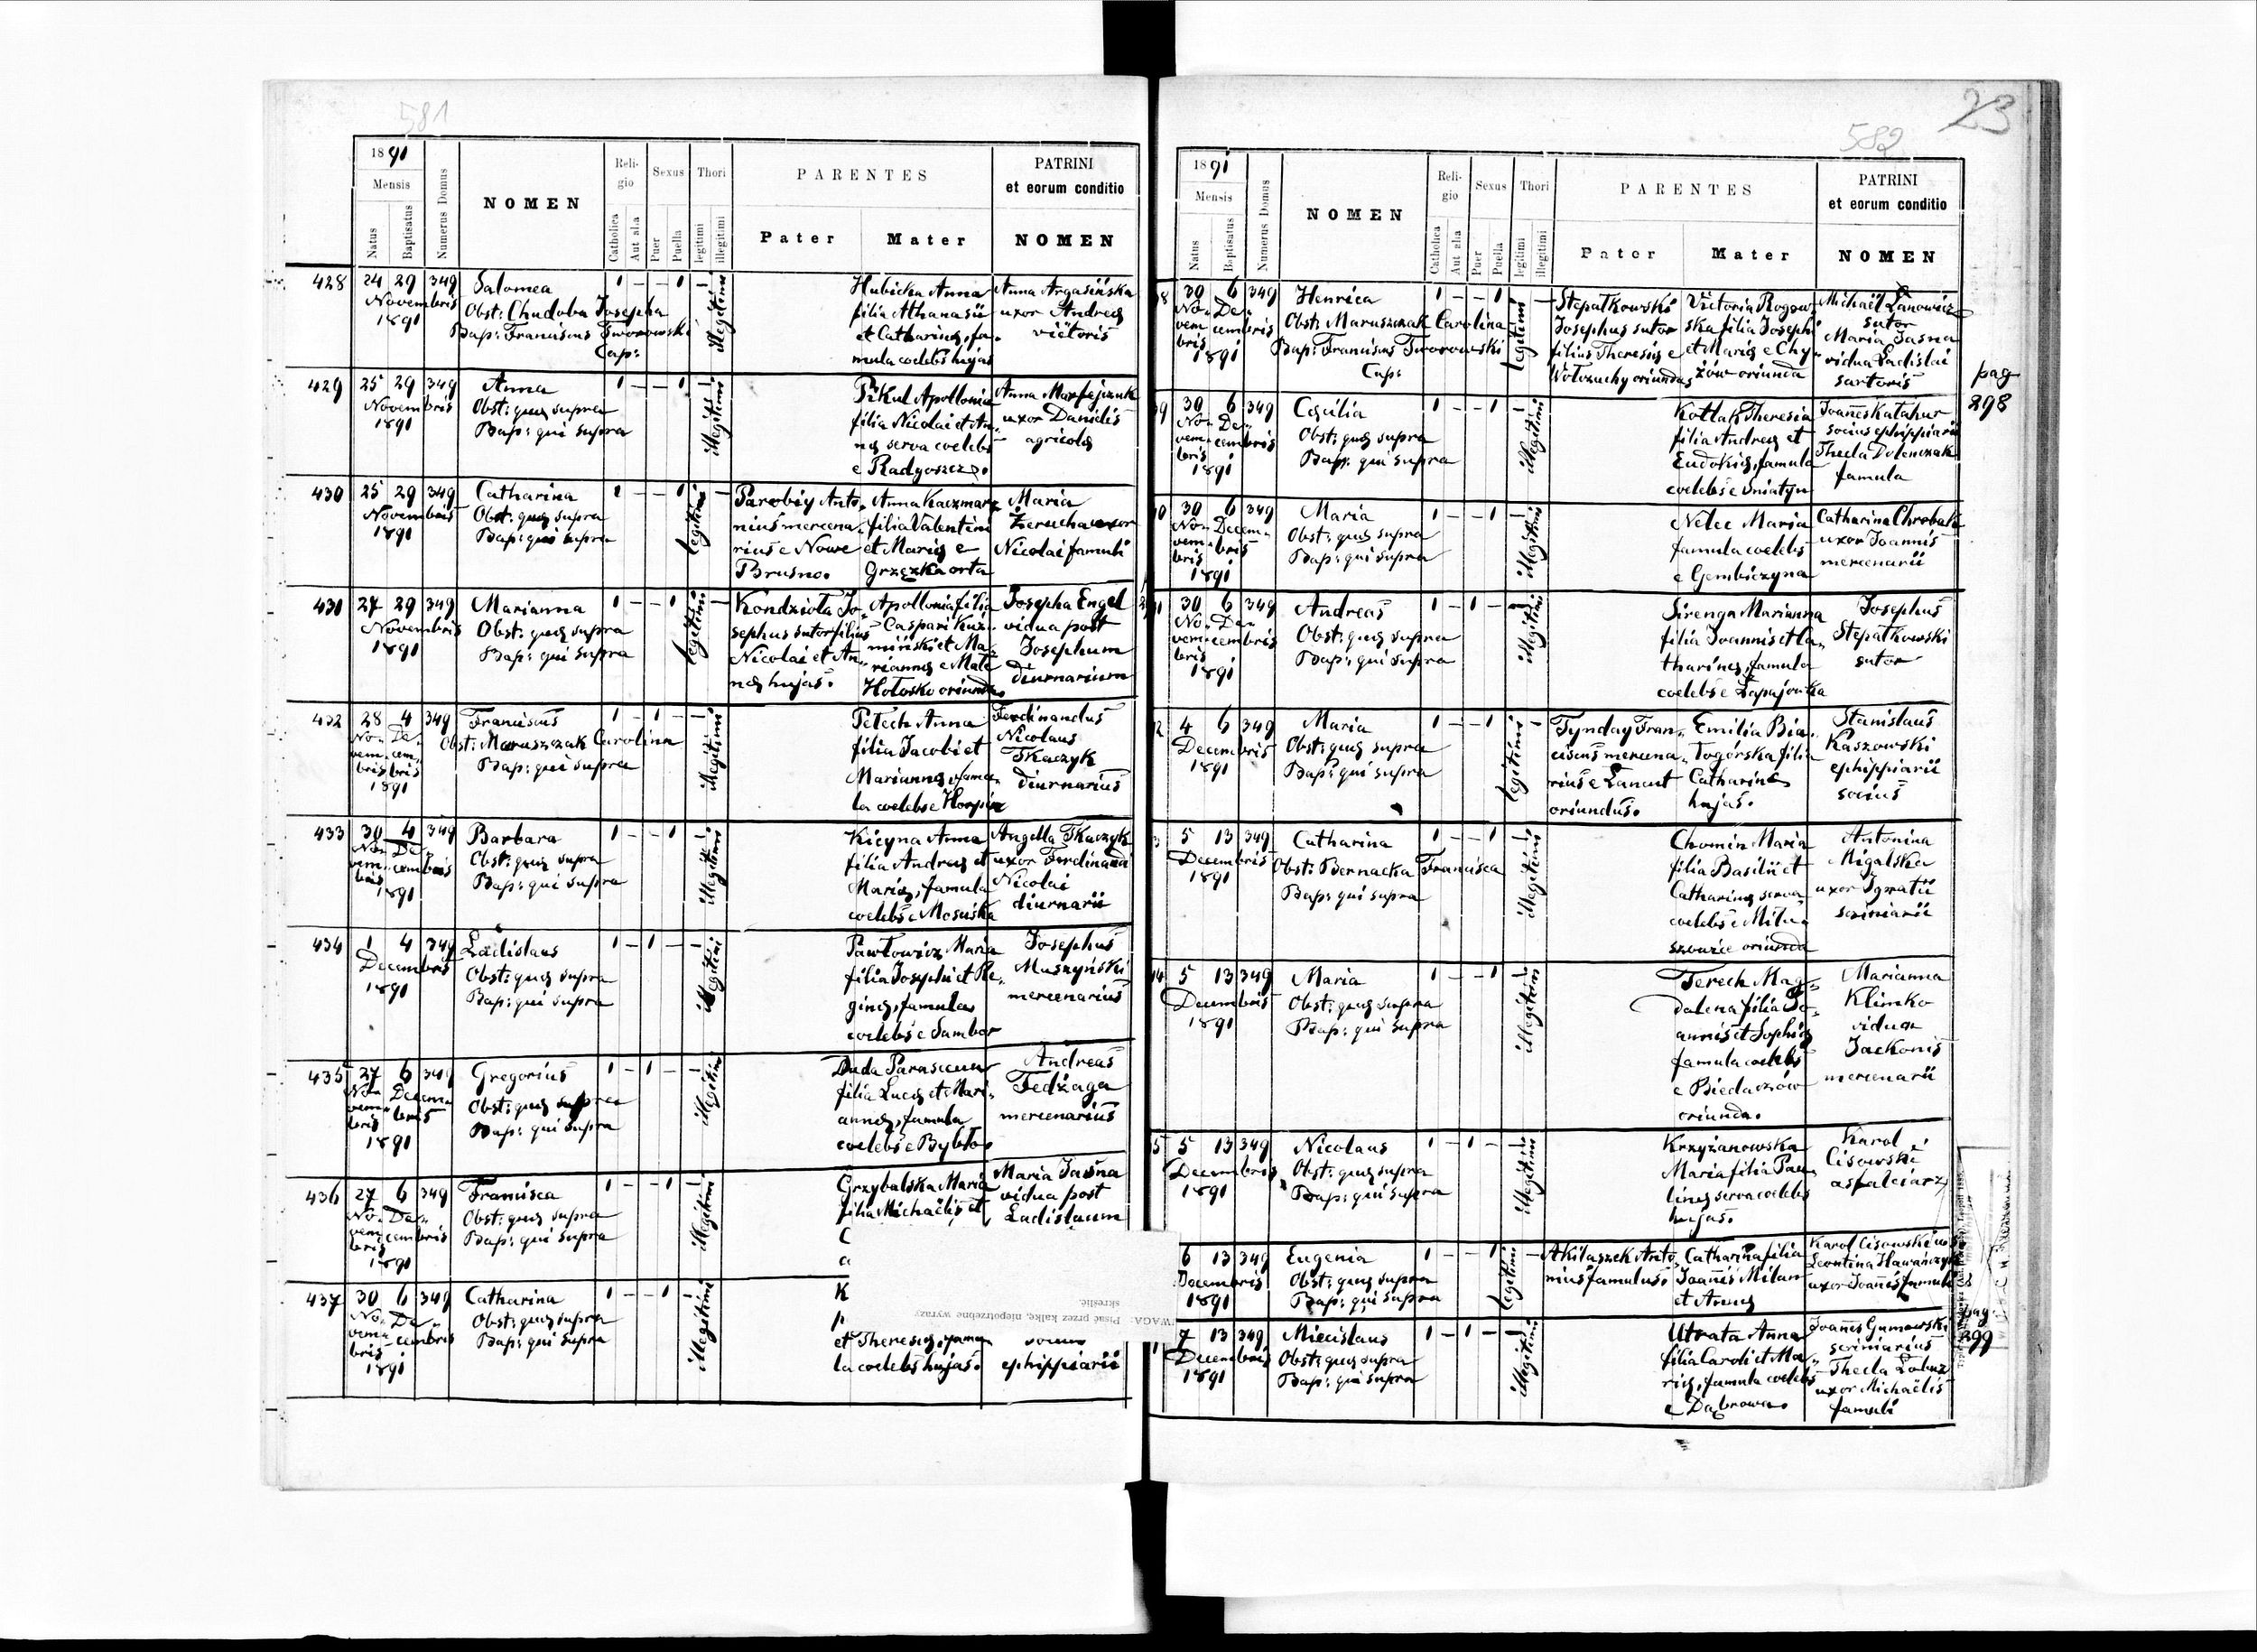 581
1891
Mensis
Natus
Baptisatus
Numerus Domus
NOMEN
Religio
Catholica
Aut alia
Sexus
Puer
Puella
Thori
legitimi
illegitimi
PARENTES
Pater
Mater
PATRINI
et eorum conditio
NOMEN
428
24 29 349
Novembris
1891
Salomea
Obst: Chudoba Josepha
Bap: Franciscus Tworowski
Cap:
1 – – 1 –
illegitimi
Hubicka Anna
filia Athanasii
et Catharinę, fa-
mula coelebs hujas
Anna Argasińska
uxor Andreę
victoris
429
25 29 349
Novembris
1891
Anna
Obst: quę supra
Bap: qui supra
1 – – 1 –
illegiti
Pikul Apollonia
filia Nicolai et An-
nę serva coelebs
e Radgoszcz.
Anna
uxor Danielis
agricolę
430
25 29 349
Novembris
1891
Catharina
Obst: quę supra
Bap: qui supra
1 – – 1
legitimi
Parobiy Anto-
nius mercena-
rius e Nowe
Brusno.
Anna Kaczmarz
filia Valentini
et Marię e
Grzęzka orta
Maria
Zierucha uxor
Nicolai famuli
431
27 29 349
Novembris
1891
Marianna
Obst: quę supra
Bap: qui supra
1 – – 1
legitimi
Kondzioła Jo-
sephus sutor filius
Nicolai et An-
nę hujas.
Apollonia filia
Caspari Kuź-
miński et Ma-
riannę e Małe
Hołosko oriunda.
Josepha Engel
vidua post
Josephum
diurnarium
432
28 4 349
No- De-
vem- cem-
bris bris
1891
Franciscus
Obst: Maruszczak Carolina
Bap: qui supra
1 – 1 – –
illegitimi
Petech Anna
filia Jacobi et
Mariannę famu-
la coelebs e
Ferdinandus
Nicolaus
Tkaczyk
diurnarius
433
30 4 349
No- De-
vem- cembris
bris
1891
Barbara
Obst: quę supra
Bap: qui supra
1 – – 1 –
illegitimi
Kicyna Anna
filia Andreę et
Marię, famula
coelebs e Mosciska
Angella Tkaczyk
uxor Ferdinandi
Nicolai
diurnarii
434
1 4 349
Decembris
1891
Ladislaus
Obst: quę supra
Bap: qui supra
1 – 1 – –
illegitimi
Pawłowicz Maria
filia Josephi et Re-
ginę, famula
coelebs e Sambor
Josephus
Muszyński
mercenarius
435
27 6 349
No- Decem-
vem- bris
bris
1891
Gregorius
Obst: quę supra
Bap: qui supra
1 – 1 – –
illegitimi
Duda Parascewa
filia Lucę et Mari-
annę, famula
coelebs e Bybło.
Andreas
Fedżaga
mercenarius
436
27 6 349
No- De-
vem- cembris
bris
1891
Francisca
Obst: quę supra
Bap: qui supra
1 – – 1 –
illegitimi
Grzybalska Maria
filia Michaëlis et
C
a
Maria Jasna
vidua post
Ladislaum
437
30 6 349
No- De-
vem- cembris
bris
1891
Catharina
Obst: quę supra
Bap: qui supra
1 – – 1 –
illegitimi
K
et Theresię, famu-
la coelebs hujas.
socius
ephippiarii
UWAGA: Pisać przez kalkę, niepotrzebne wyrazy
skreślić.
23
582
1891
Mensis
Natus
Baptisatus
Numerus Domus
NOMEN
Religio
Catholica
Aut alia
Sexus
Puer
Puella
Thori
legitimi
illegitimi
PARENTES
Pater
Mater
PATRINI
et eorum conditio
NOMEN
8
30 6 349
No- De-
vem- cembris
bris
1891
Henrica
Obst: Maruszczak Carolina
Bap: Franciscus Tworowski
Cap:
1 – – 1
legitimi
Stepatkowski
Josephus sutor
filius Theresię e
Wołczuchy oriundus
Victoria Rogow-
ska filia Josephi
et Marię e Chy-
żów oriunda
Michaël Łanowicz
sutor
Maria Jasna
vidua Ladislai
sartoris
pag
298
9
30 6 349
No- De-
vem- cembris
bris
1891
Cęcilia
Obst: quę supra
Bap: qui supra
1 – – 1 –
illegitimi
Kotlak Theresia
filia Andreę et
Eudokię, famula
coelebs e Sniatyn
Joannes Katahur
socius ephippiarii
Thecla Dolenczak
famula
0
30 6 349
No- Decem-
vem- bris
bris
1891
Maria
Obst: quę supra
Bap: qui supra
1 – – 1 –
illegitimi
Nelec Maria
famula coelebs
e Gembiczyna
Catharina Chrobak
uxor Joannis
mercenarii
1
30 6 349
No- De-
vem- cembris
bris
1891
Andreas
Obst: quę supra
Bap: qui supra
1 – 1 – –
illegitimi
Sirenga Marianna
filia Joannis et Ca-
tharinę, famula
coelebs e Łapajówka
Josephus
Stepatkowski
sutor
2
4 6 349
Decembris
1891
Maria
Obst: quę supra
Bap: qui supra
1 – – 1
legitimi
Tynday Fran-
ciscus mercena-
rius e Łancut
oriundus.
Emilia Bia-
łogórska filia
Catharinę
hujas.
Stanislaus
Kaszowski
ephippiarii
socius
3
5 13 349
Decembris
1891
Catharina
Obst: Bernacka Francisca
Bap: qui supra
1 – – 1 –
illegitimi
Chomin Maria
filia Basilii et
Catharinę serva
coelebs e Milu-
szowice oriunda
Antonina
Migalska
uxor Ignatii
scriniarii
4
5 13 349
Decembris
1891
Maria
Obst: quę supra
Bap: qui supra
1 – – 1 –
illegitimi
Terech Mag-
dalena filia Jo-
annis et Sophię
famula coelebs
e Biedaczów
oriunda.
Marianna
Klimko
vidua
Jackonis
mercenarii
5
5 13 349
Decembris
1891
Nicolaus
Obst: quę supra
Bap: qui supra
1 – 1 – –
illegitimi
Krzyżanowska
Maria filia Pau-
linę serva coelebs
hujas.
Karol
Cisowski
asfalciarz
6 13 349
Decembris
1891
Eugenia
Obst: quę supra
Bap: qui supra
1 – – 1
legitimi
Akilaszek Anto-
nius famulus.
Catharina filia
Joannis Milan
et Annę
Karol Cisowski
Leontina Hawrańczyk
uxor Joannis famuli
7 13 349
Decembris
1891
Miecislaus
Obst: quę supra
Bap: qui supra
1 – 1 – –
illegitimi
Utrata Anna
filia Caroli et Ma-
rię, famula coelebs
e Dąbrowa.
Joannes Gumowski
scriniarius
Thecla
uxor Michaëlis
famuli
pag
299